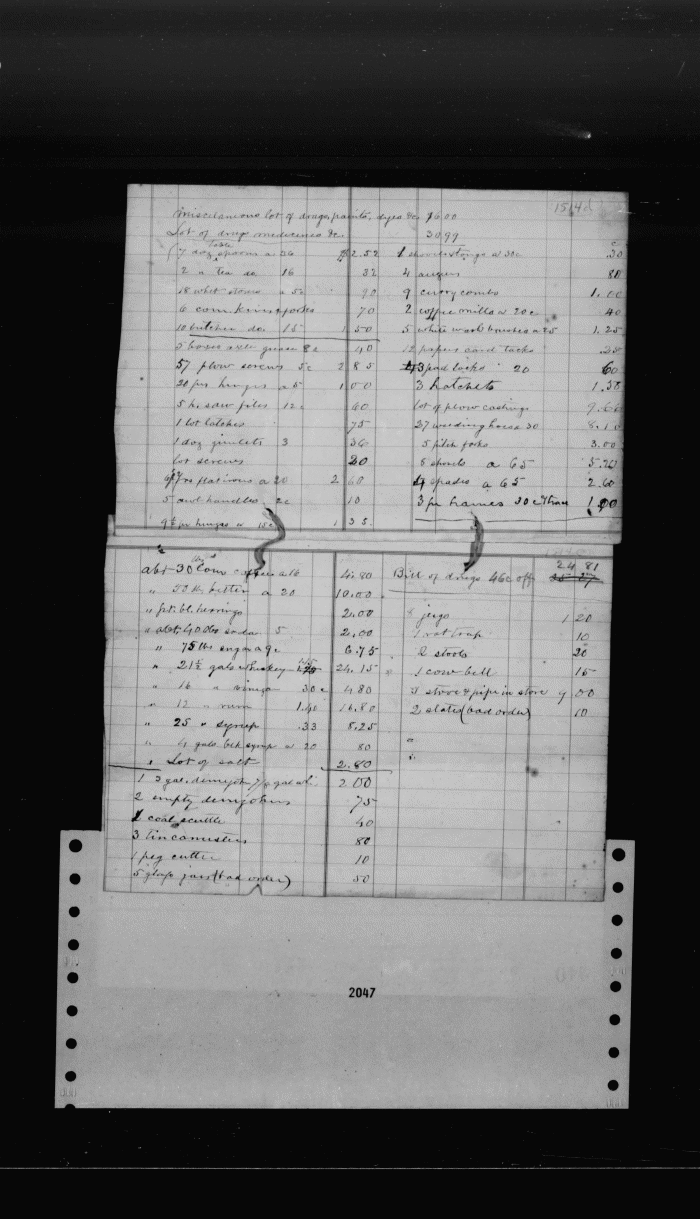 1542
Miscelaneous lot of drugs, paints, dyes &c 16.00
Lot of drugs medicines &c 30.99
7 doz Table spoons a 36 $2.52
2 " tea do 16 32
18 whet stones a 5c 90
6 com knives & forks 70
10 butcher do. 15 1 50
5 boxes axle grease 8c 40
57 plow screws 5c 2 85
20 prs hinges a 5 1 00
5 h. saw files 12c 60
1 lot latches 75
1 doz gimlets 3 36
lot screws 20
prs flat irons a 20 2 60
5 awl handles 2c 10
9½ pr hinges a 15c 1 35
1 shovel & tongs a 30c .30
4 augers 80
9 curry combs 1.00
2 coffee mills a 20c 40
5 white wash brushes a 25 1.25
12 papers card tacks .35
3 pad locks 20 60
3 hatchets
lot of plow castings
27 weeding hoes 30 8.10
5 pitch forks 3.00
8 shovels a 65 5.20
4 spades a 65 2.60
3 pr hames 30c 1.00
abt 30 lbs com a 16 4.80
" 50 lbs butter a 20 10.00
" pt. bl. herrings 2.00
" abt 40 lbs soda 5 2.00
" 75 lbs sugar a 9c 6.75
" 21½ gals whiskey 24.15
" 16 " vinegar 30c 4 80
" 12 " rum 1.40 16.80
" 25 " syrup .33 8.25
" 4 gals blk syrup a 20 80
" Lot of salt 2.80
1 3 gal. demijohn 2 00
2 empty demijohns 75
1 coal scuttle 40
3 tin canisters 80
1 peg cutter 10
5 glass jars (bad order) 50
24 81
Bill of drugs 46c off
8 jugs 1 20
1 rat trap 10
2 stools 20
1 cow bell 15
stove & pipe in store 9 00
2 slates (bad order) 10
2047